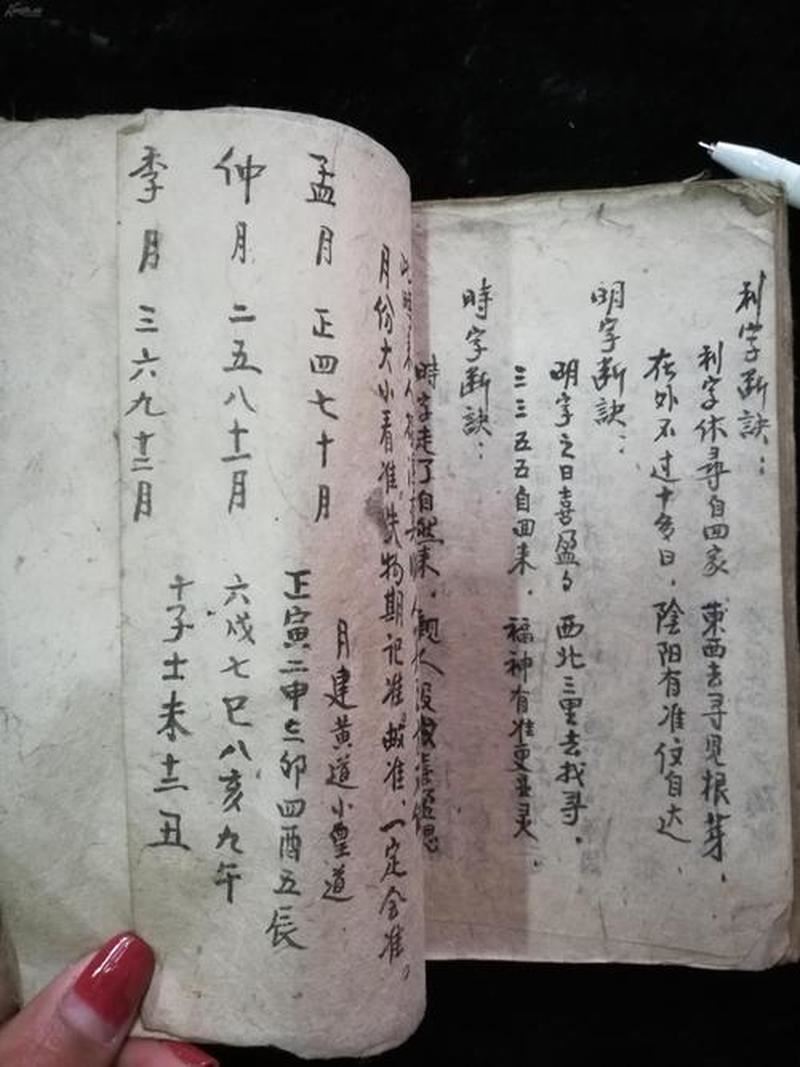 利字断訣：
利字休尋自回家 東西去寻见根芽，
在外不过十多日，陰阳有准 自达、
明字断訣：
明字之日喜盈々 西北三里去找寻，
三三五五自回来，福神有准更 灵，
時字断訣：
時字走了自然来，
月份大小看准，失物期记准 准，一定会准。
孟月 正四七十月
仲月 二五八十一月
季月 三六九十二月
月建黄道小皇道
正寅二申三卯四酉五辰
六戌七巳八亥九午
十子十一未十二丑